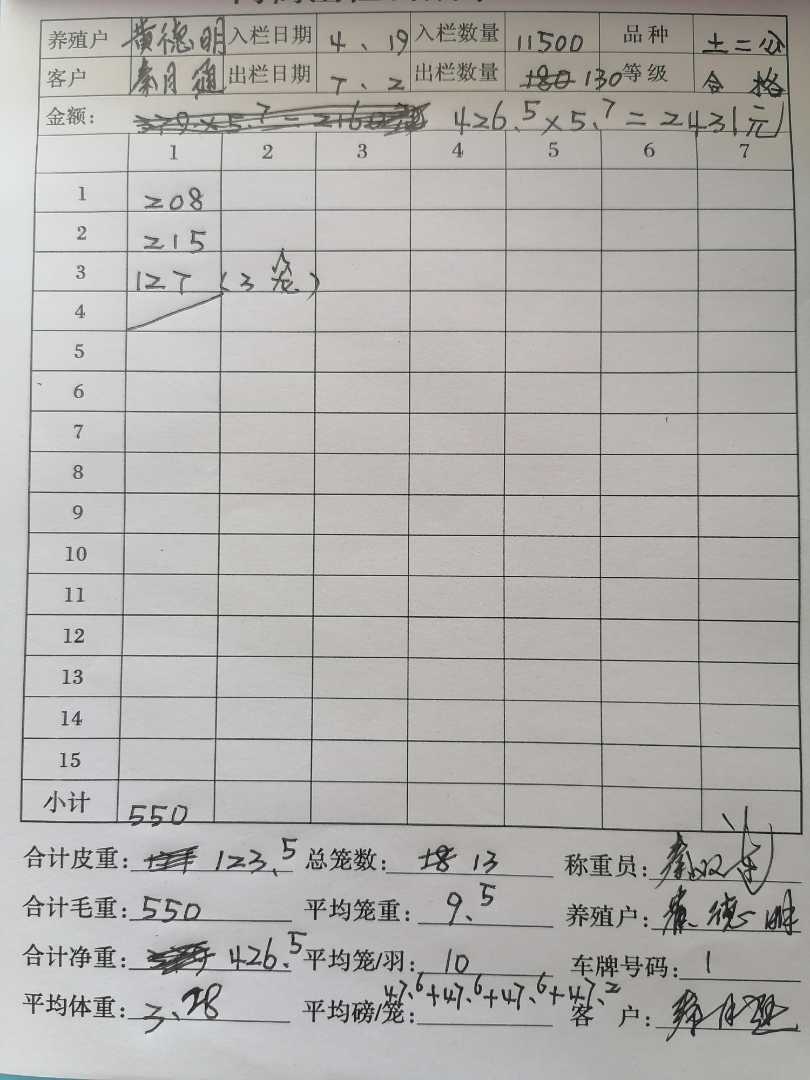 养殖户 黄德明 入栏日期 4、19 入栏数量 11500 品种 土二公
客户 秦月 出栏日期 7、2 出栏数量 130 等级 合格
金额: 426.5×5.7=2431元
1 2 3 4 5 6 7
1 208
2 215
3 127 (3笼)
4
5
6
7
8
9
10
11
12
13
14
15
小计 550
合计皮重: 123.5 总笼数: 13 称重员: 秦
合计毛重: 550 平均笼重: 9.5 养殖户: 黄德明
合计净重: 426.5 平均笼/羽: 10 车牌号码: 1
平均体重: 3.28 平均磅/笼: 47.6+47.6+47.6+47.2 客户: